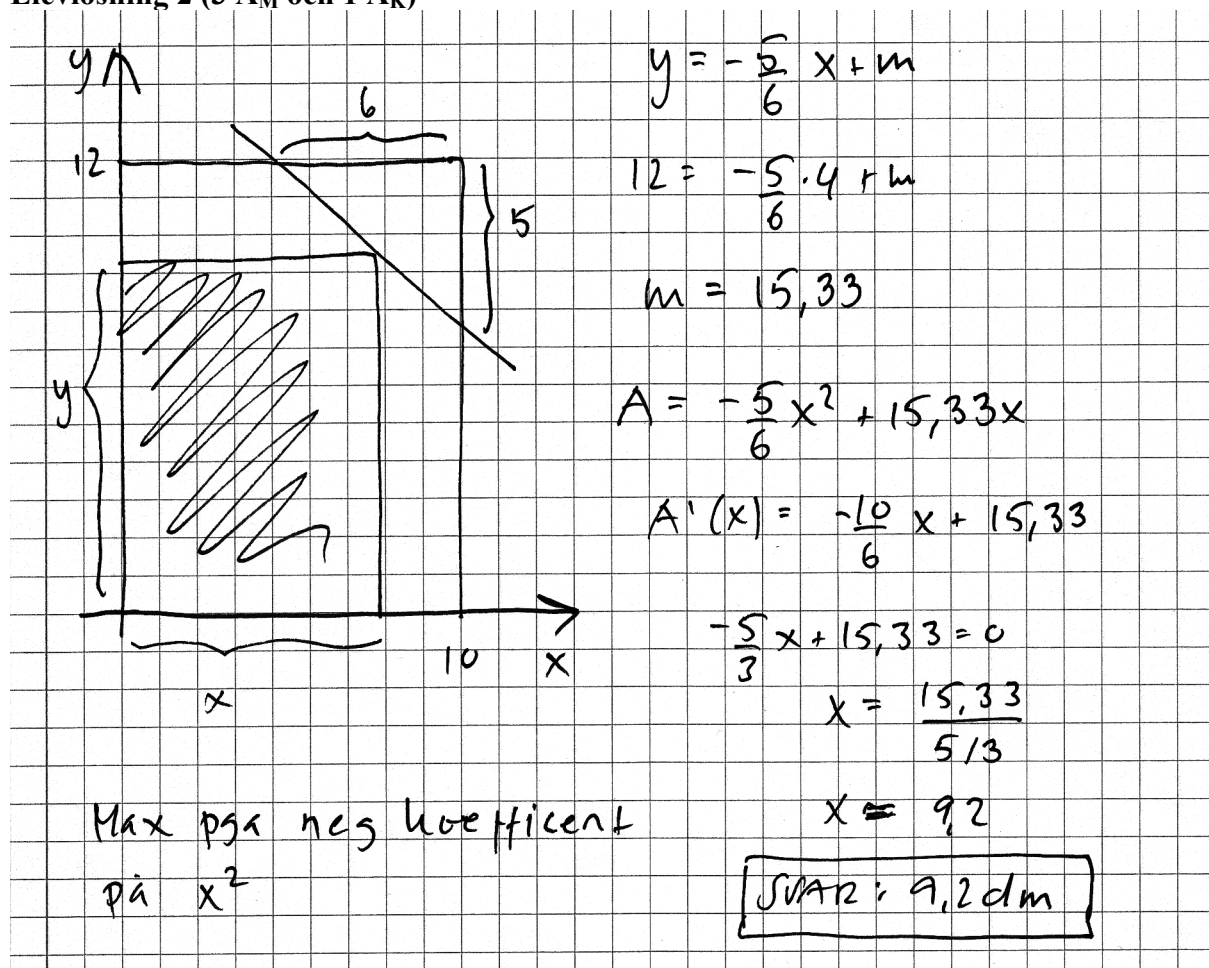 Elevlösning 2 (3 A_M och 1 A_K)
y
12
6
5
y
x
10 x
y = -5/6 x + m
12 = -5/6 · 4 + m
m = 15,33
A = -5/6 x² + 15,33x
A'(x) = -10/6 x + 15,33
-5/3 x + 15,33 = 0
x = 15,33 / 5/3
x = 9,2
Max pga neg koefficent
på x²
SVAR: 9,2 dm